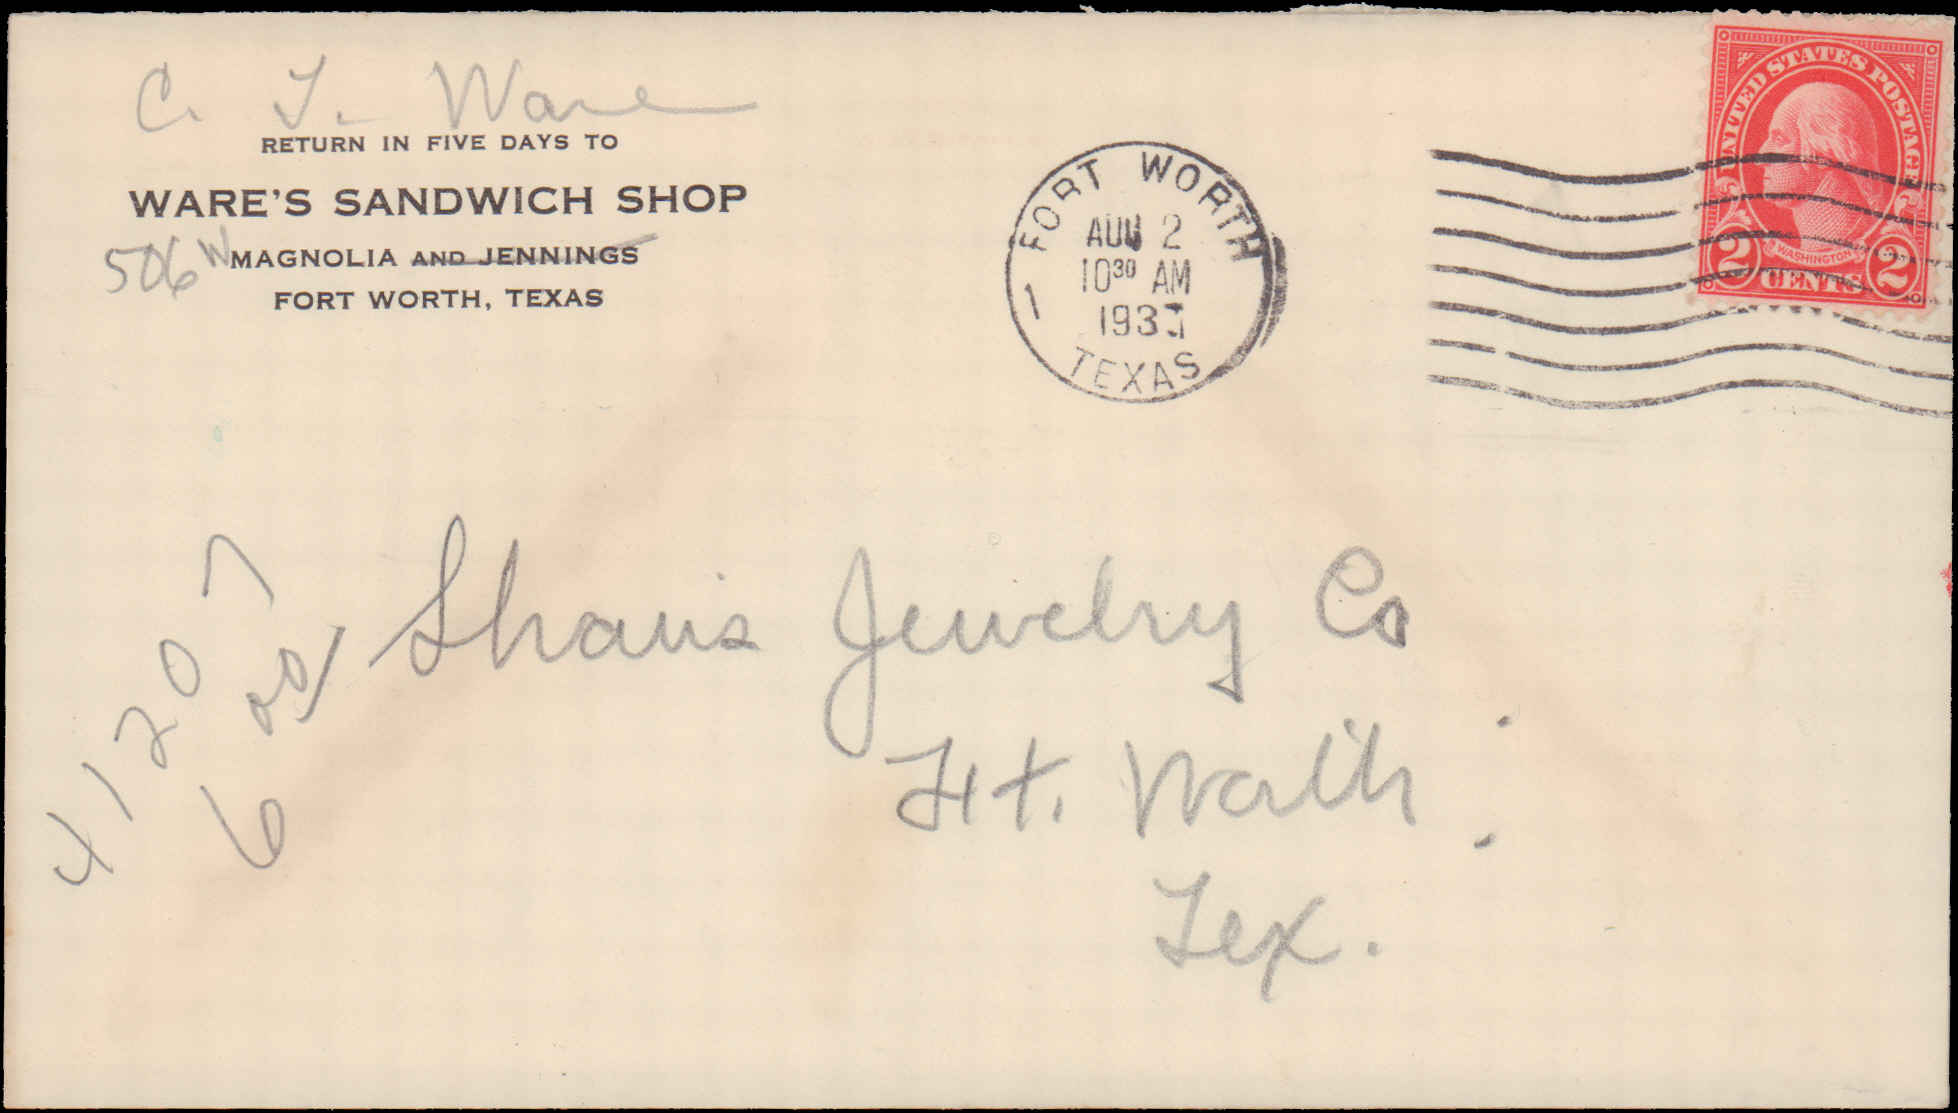 C. T. Ware
RETURN IN FIVE DAYS TO
WARE'S SANDWICH SHOP
506 W MAGNOLIA AND JENNINGS
FORT WORTH, TEXAS
FORT WORTH
1
AUG 2
10 30 AM
193
TEXAS
UNITED STATES POSTAGE
WASHINGTON
2 CENTS 2
41207
6
Jewelry Co
Ft. Worth
Tex.